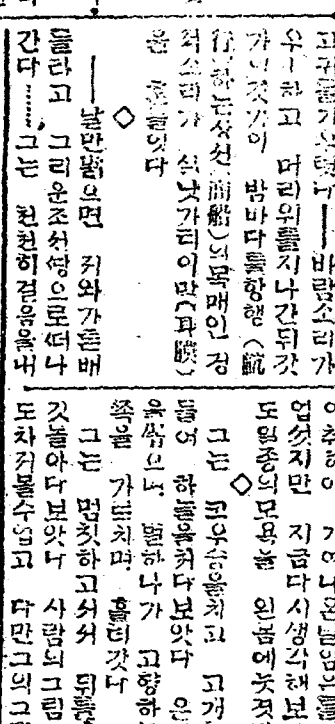 고귀를기
우−하고 머리위를지나간뒤갓
가이것가이 밤바다를항행(航
行)하는상선(商船)의목매인 경
적소리가 실낫가티이막(耳膜)
을 흔들엇다
◇
──날만밝으면 귀와가튼배
들라고 그리운조선땅으로떠나
간다……그는 천천히걸음을내
이추어 가
업섯지만 지금다시생각해보
도일종의모욕을 왼몸에늣겻
◇
그는 코우슴을치고 고개
들여 하늘을치다보앗다 은
을 별하나가 고향하
쪽을 가르치며 흘러갓다
그는 멈칫하고서서 뒤를
깃놀아다보앗다 사람의그림
도차저볼수업고 다만그의그